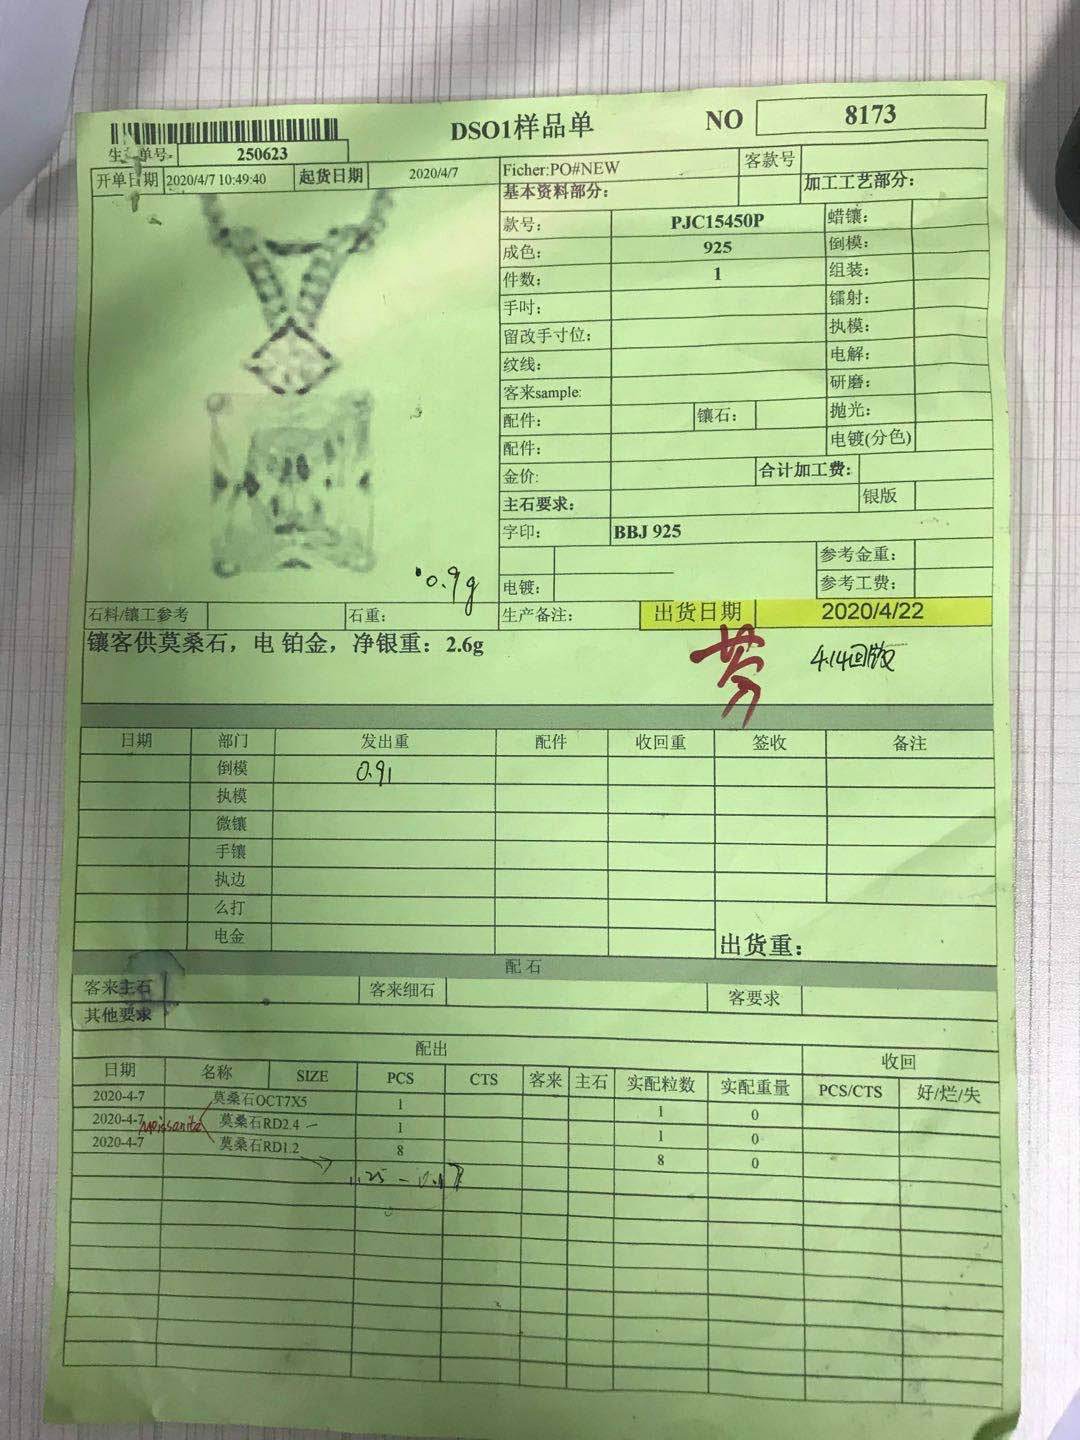 DSO1样品单
NO 8173
单号: 250623
开单日期 2020/4/7 10:49:40 起货日期 2020/4/7 Ficher:PO#NEW 客款号
基本资料部分: 加工工艺部分:
款号: PJC15450P 蜡镶:
成色: 925 倒模:
件数: 1 组装:
手吋: 镭射:
留改手寸位: 执模:
纹线: 电解:
客来sample: 研磨:
配件: 镶石: 抛光:
配件: 电镀(分色)
金价: 合计加工费:
主石要求: 银版
字印: BBJ 925
参考金重:
电镀: 参考工费:
0.9g
石料/镶工参考 石重: 生产备注: 出货日期 2020/4/22
镶客供莫桑石，电 铂金，净银重：2.6g
4.14回版
日期 部门 发出重 配件 收回重 签收 备注
倒模 0.91
执模
微镶
手镶
执边
么打
电金 出货重:
配石
客来主石 客来细石 客要求
其他要求
配出 收回
日期 名称 SIZE PCS CTS 客来 主石 实配粒数 实配重量 PCS/CTS 好/烂/失
2020-4-7 莫桑石OCT7X5 1 1 0
2020-4-7 莫桑石RD2.4 1 1 0
Moissanite
2020-4-7 莫桑石RD1.2 8 8 0